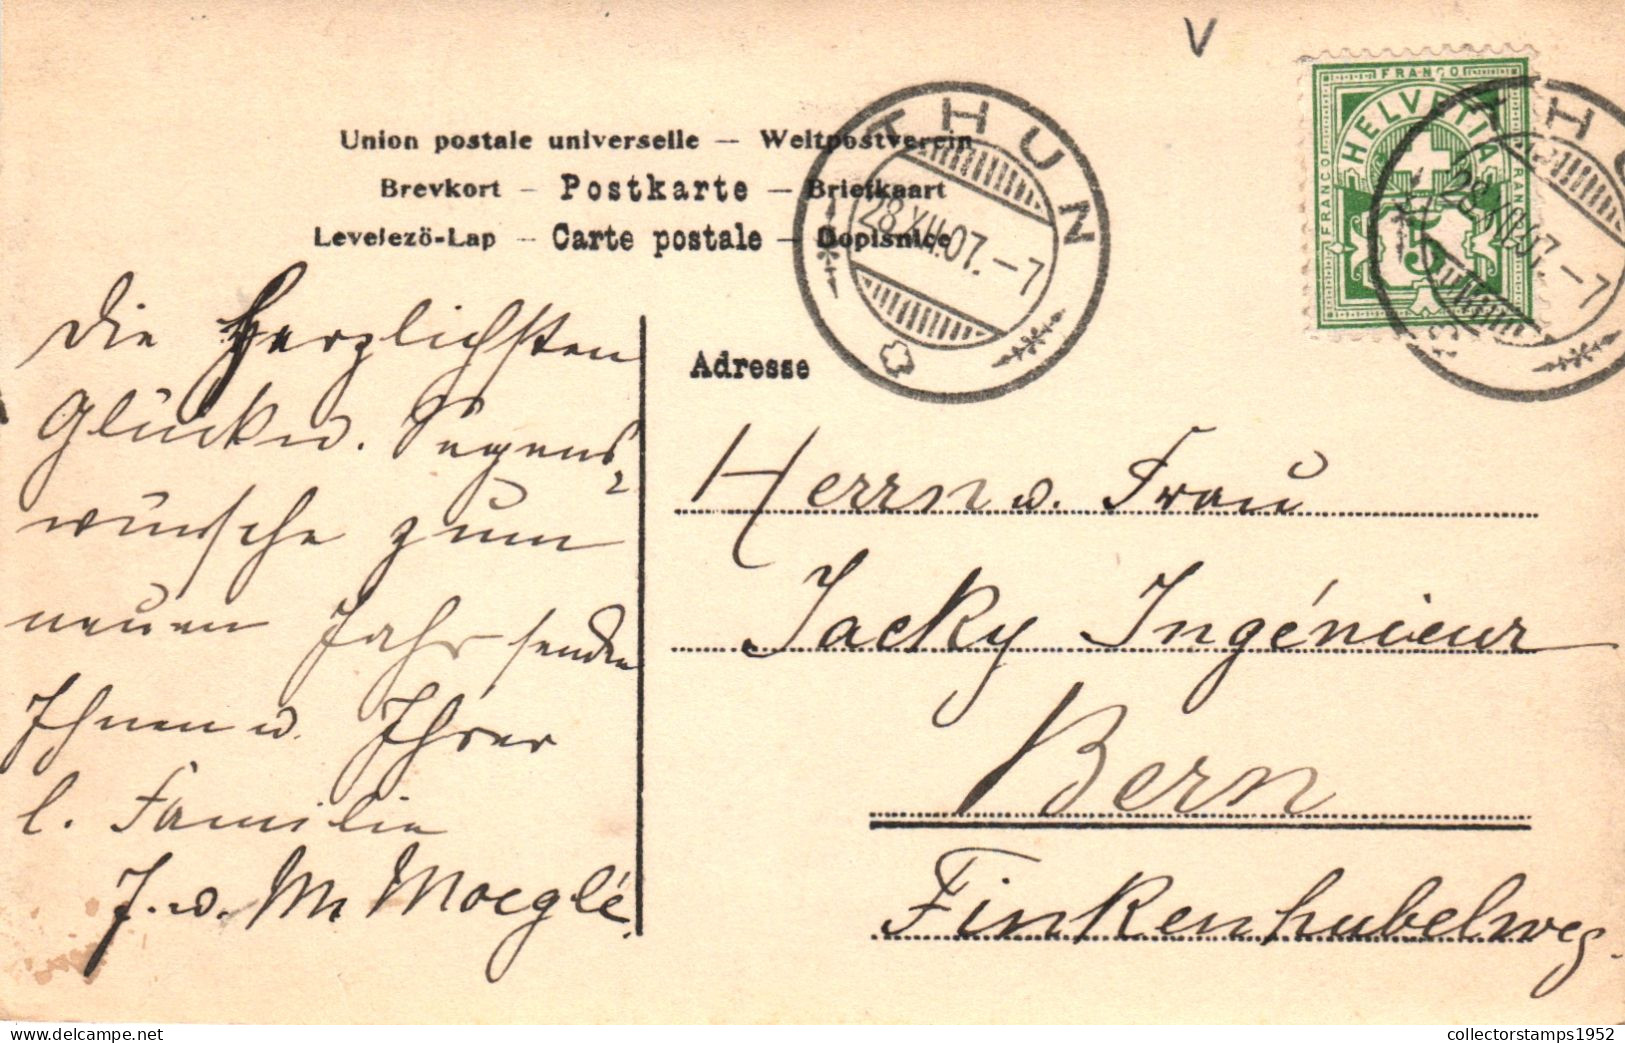 V
Union postale universelle — Weltpostverein
Brevkort — Postkarte — Briefkaart
Levelező-Lap — Carte postale — Dopisnice
THUN
28.XII.07.–7
FRANCO
HELVETIA
FRANCO
FRANCO
5
THU
28.XII.07.–7
Die Herzlichsten
Glück u. Segens-
wünsche zum
neuen Jahr senden
Ihnen u. Ihrer
l. Familie
J. u. M Moeglé.
Adresse
Herrn u. Frau
Jacky Ingénieur
Bern
Finkenhubelweg.
www.delcampe.net
collectorstamps1952